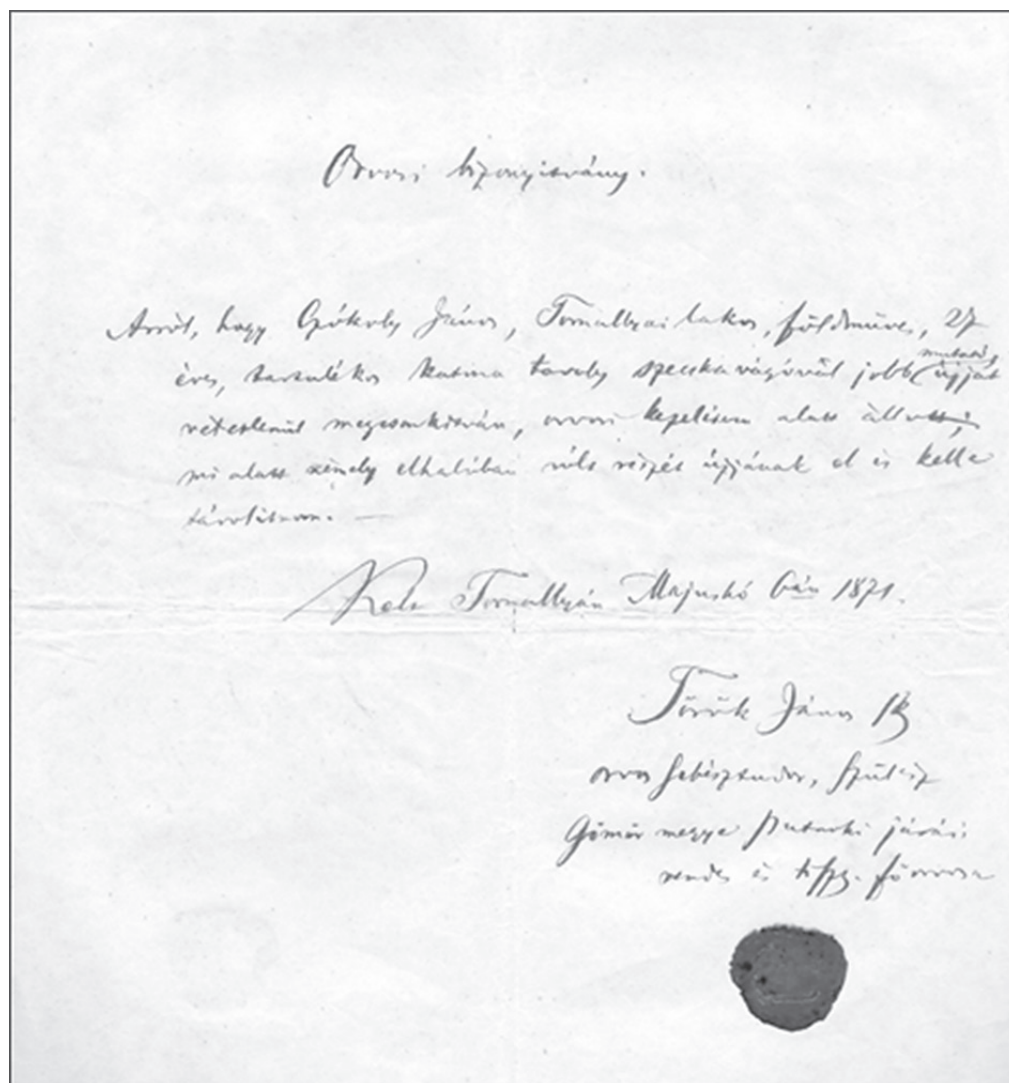 Orvosi bizonyitvány.
Arról, hogy János, Tornallyai lakos, földműves, 27
éves, tartalékos katona tavaly szecskavágóval jobb mutató újját
megcsonkitván, orvosi kezelésem alatt állott,
mi alatt elhalóban vólt részét újjának el is kelle
távolitnom. —
Kelt Tornallyán Majushó 6án 1871.
Török János
orvos sebésztudor, szülész
Gömör megye Putnoki járási
rendes és főorvosa